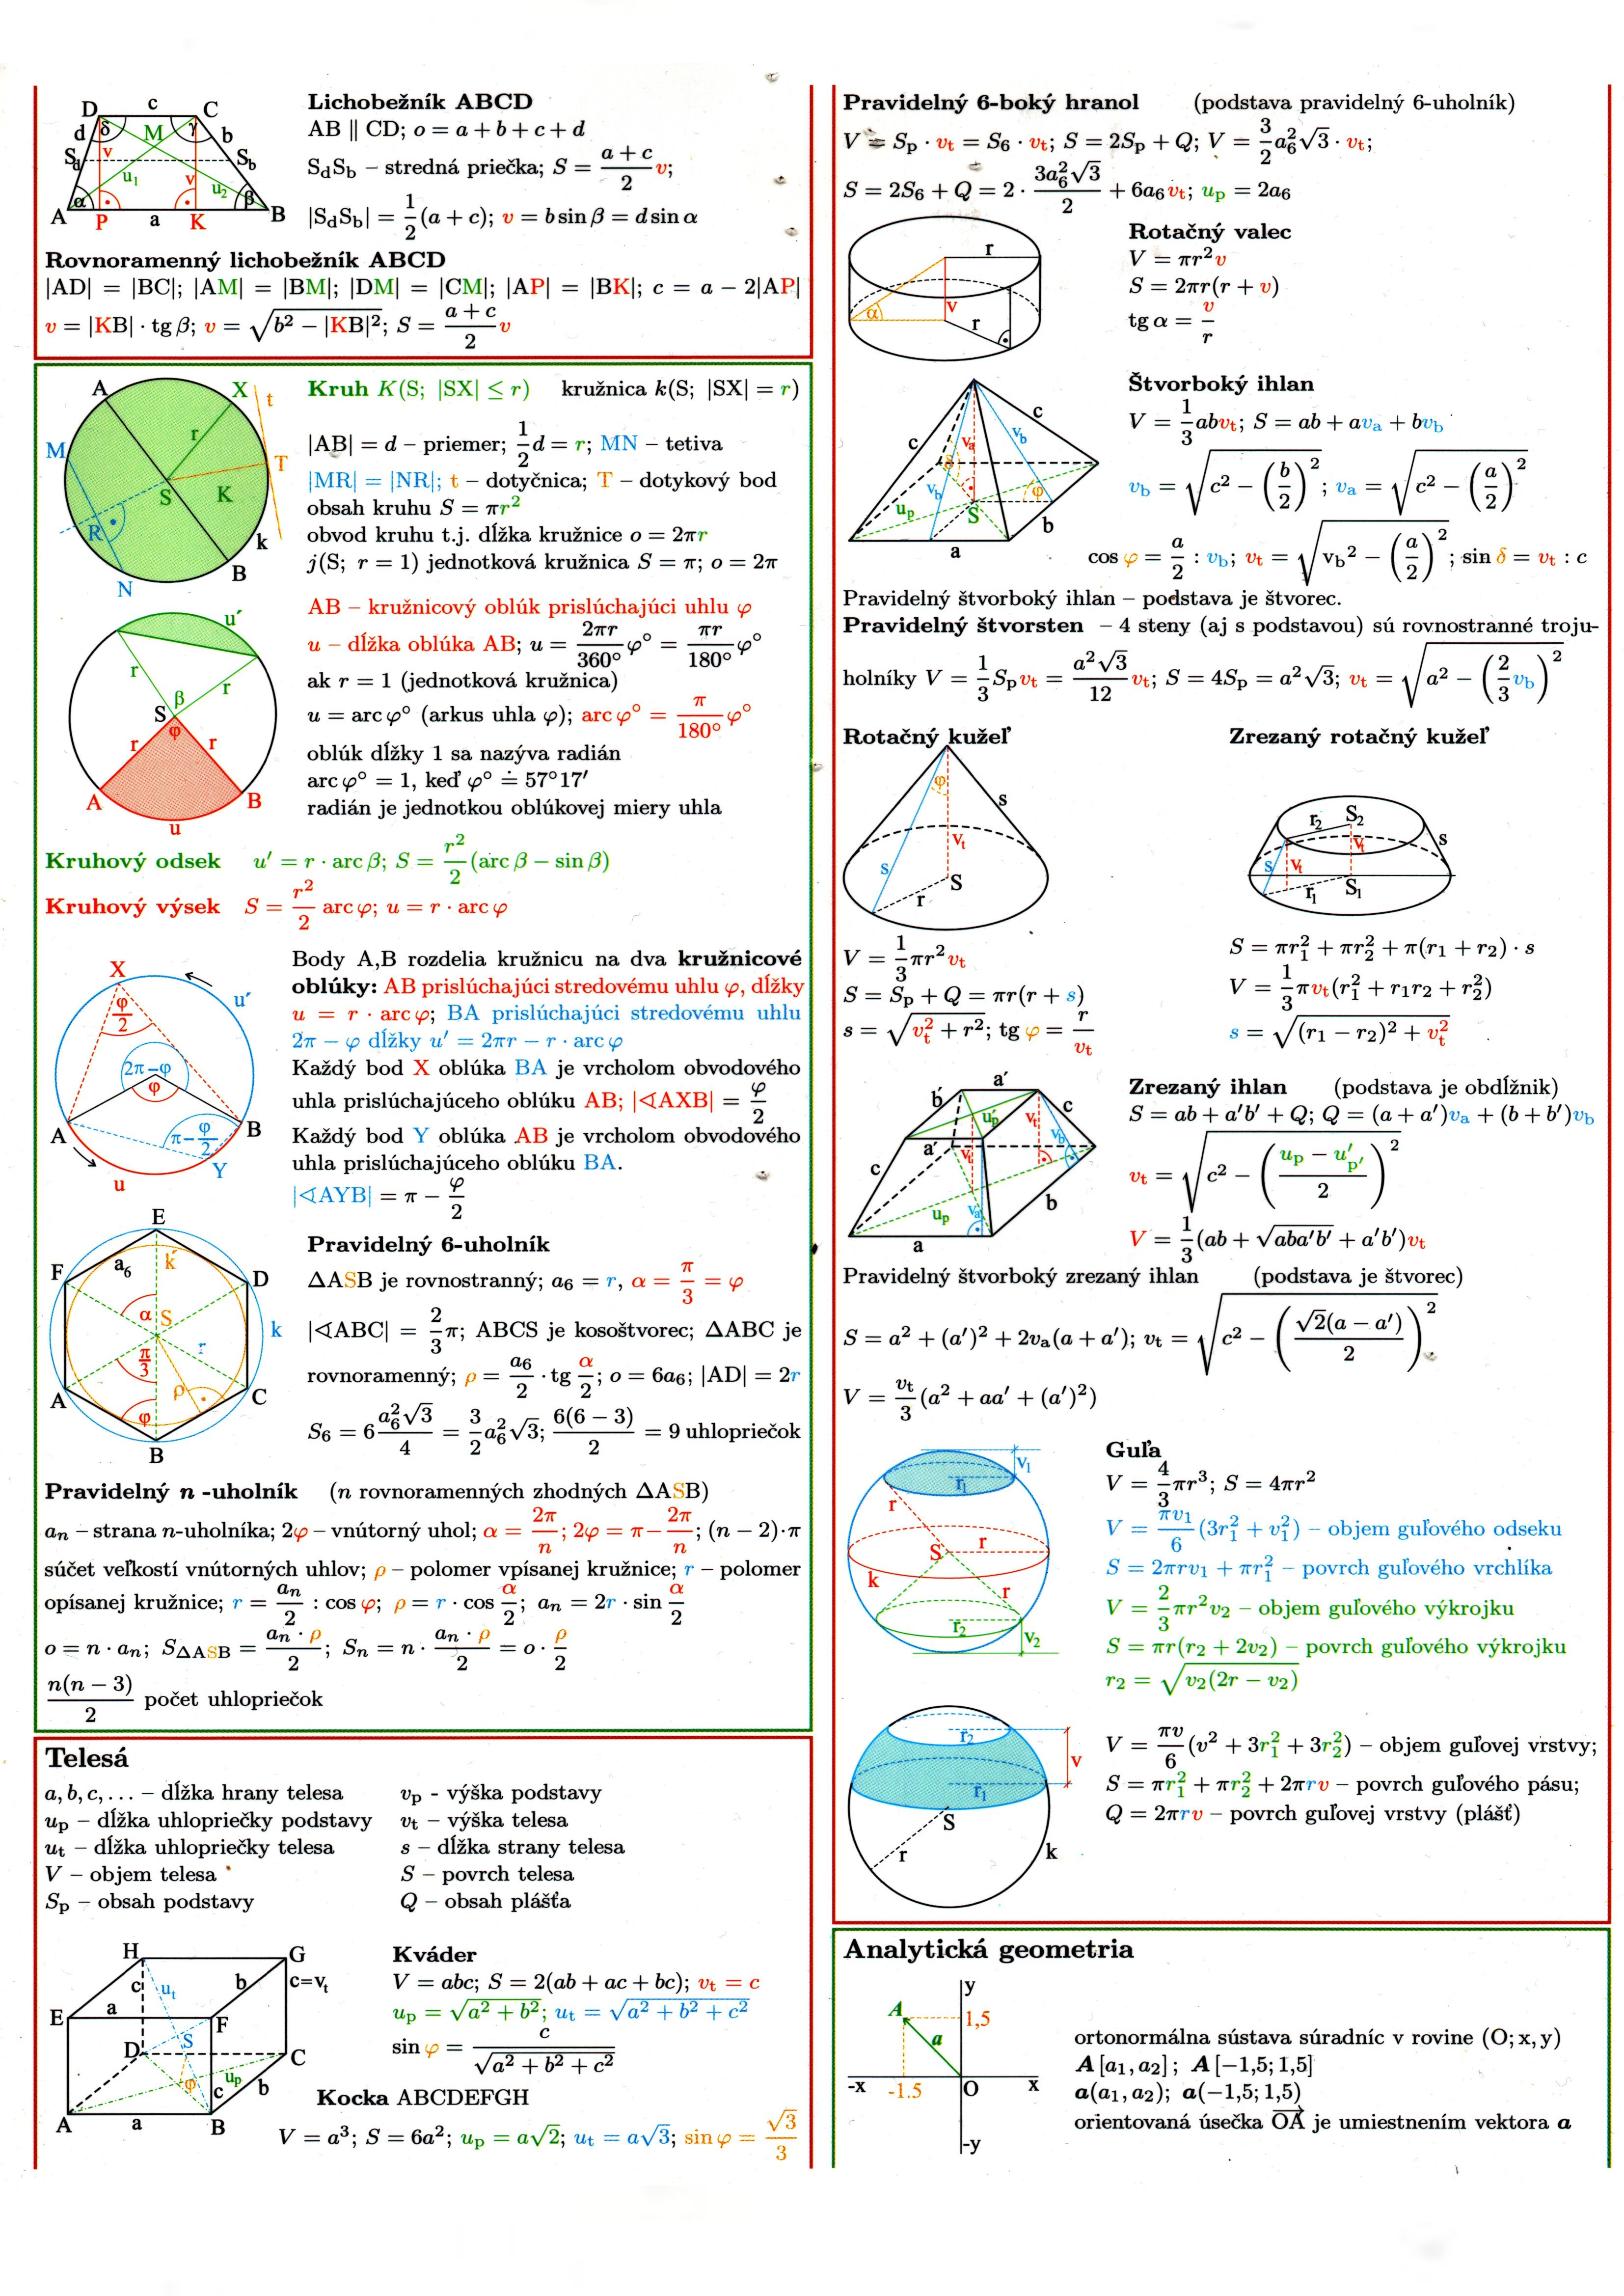 Lichobežník ABCD
AB ∥ CD; o = a + b + c + d
S_dS_b – stredná priečka; S = (a + c)/2 v;
|S_dS_b| = 1/2 (a + c); v = b sin β = d sin α
D c C
d δ M γ b
S_d v S_b
u₁ v u₂
A α β B
P a K
Rovnoramenný lichobežník ABCD
|AD| = |BC|; |AM| = |BM|; |DM| = |CM|; |AP| = |BK|; c = a − 2|AP|
v = |KB| · tg β; v = √(b² − |KB|²); S = (a + c)/2 v
Kruh K(S; |SX| ≤ r) kružnica k(S; |SX| = r)
|AB| = d – priemer; 1/2 d = r; MN – tetiva
|MR| = |NR|; t – dotyčnica; T – dotykový bod
obsah kruhu S = πr²
obvod kruhu t.j. dĺžka kružnice o = 2πr
j(S; r = 1) jednotková kružnica S = π; o = 2π
A X t
M r T
S K
R k
B
N
AB – kružnicový oblúk prislúchajúci uhlu φ
u – dĺžka oblúka AB; u = 2πr/360° φ° = πr/180° φ°
ak r = 1 (jednotková kružnica)
u = arc φ° (arkus uhla φ); arc φ° = π/180° φ°
oblúk dĺžky 1 sa nazýva radián
arc φ° = 1, keď φ° ≐ 57°17′
radián je jednotkou oblúkovej miery uhla
u′
r β r
S
φ
r r
A B
u
Kruhový odsek u′ = r · arc β; S = r²/2 (arc β − sin β)
Kruhový výsek S = r²/2 arc φ; u = r · arc φ
Body A,B rozdelia kružnicu na dva kružnicové
oblúky: AB prislúchajúci stredovému uhlu φ, dĺžky
u = r · arc φ; BA prislúchajúci stredovému uhlu
2π − φ dĺžky u′ = 2πr − r · arc φ
Každý bod X oblúka BA je vrcholom obvodového
uhla prislúchajúceho oblúku AB; |∢AXB| = φ/2
Každý bod Y oblúka AB je vrcholom obvodového
uhla prislúchajúceho oblúku BA.
|∢AYB| = π − φ/2
X u′
φ/2
2π−φ
φ
A π−φ/2 B
Y
u
Pravidelný 6-uholník
ΔASB je rovnostranný; a₆ = r, α = π/3 = φ
|∢ABC| = 2/3 π; ABCS je kosoštvorec; ΔABC je
rovnoramenný; ρ = a₆/2 · tg α/2; o = 6a₆; |AD| = 2r
S₆ = 6 a₆²√3/4 = 3/2 a₆²√3; 6(6 − 3)/2 = 9 uhlopriečok
E
F a₆ k′ D
α S
k
π/3 r
ρ
A φ C
B
Pravidelný n -uholník (n rovnoramenných zhodných ΔASB)
aₙ – strana n-uholníka; 2φ – vnútorný uhol; α = 2π/n; 2φ = π − 2π/n; (n − 2)·π
súčet veľkostí vnútorných uhlov; ρ – polomer vpísanej kružnice; r – polomer
opísanej kružnice; r = aₙ/2 : cos φ; ρ = r · cos α/2; aₙ = 2r · sin α/2
o = n · aₙ; S_ΔASB = aₙ · ρ/2; Sₙ = n · aₙ · ρ/2 = o · ρ/2
n(n − 3)/2 počet uhlopriečok
Telesá
a, b, c, … – dĺžka hrany telesa v_p - výška podstavy
u_p – dĺžka uhlopriečky podstavy v_t – výška telesa
u_t – dĺžka uhlopriečky telesa s – dĺžka strany telesa
V – objem telesa S – povrch telesa
S_p – obsah podstavy Q – obsah plášťa
Kváder
V = abc; S = 2(ab + ac + bc); v_t = c
u_p = √(a² + b²); u_t = √(a² + b² + c²)
sin φ = c/√(a² + b² + c²)
H G
c u_t b c=v_t
E a F
D S C
φ u_p
c b
A a B
Kocka ABCDEFGH
V = a³; S = 6a²; u_p = a√2; u_t = a√3; sin φ = √3/3
Pravidelný 6-boký hranol (podstava pravidelný 6-uholník)
V = S_p · v_t = S₆ · v_t; S = 2S_p + Q; V = 3/2 a₆²√3 · v_t;
S = 2S₆ + Q = 2 · 3a₆²√3/2 + 6a₆v_t; u_p = 2a₆
Rotačný valec
V = πr²v
S = 2πr(r + v)
tg α = v/r
r
α v
r
Štvorboký ihlan
V = 1/3 abv_t; S = ab + av_a + bv_b
v_b = √(c² − (b/2)²); v_a = √(c² − (a/2)²)
cos φ = a/2 : v_b; v_t = √(v_b² − (a/2)²); sin δ = v_t : c
c
c v_a v_b
δ
v_b φ
u_p S b
a
Pravidelný štvorboký ihlan – podstava je štvorec.
Pravidelný štvorsten – 4 steny (aj s podstavou) sú rovnostranné troju-
holníky V = 1/3 S_pv_t = a²√3/12 v_t; S = 4S_p = a²√3; v_t = √(a² − (2/3 v_b)²)
Rotačný kužeľ
φ
s
v_t
s
S
r
V = 1/3 πr²v_t
S = S_p + Q = πr(r + s)
s = √(v_t² + r²); tg φ = r/v_t
Zrezaný rotačný kužeľ
r₂ S₂
v_t s
s v_t
r₁ S₁
S = πr₁² + πr₂² + π(r₁ + r₂) · s
V = 1/3 πv_t(r₁² + r₁r₂ + r₂²)
s = √((r₁ − r₂)² + v_t²)
Zrezaný ihlan (podstava je obdĺžnik)
S = ab + a′b′ + Q; Q = (a + a′)v_a + (b + b′)v_b
v_t = √(c² − ((u_p − u′_p′)/2)²)
V = 1/3 (ab + √(aba′b′) + a′b′)v_t
a′
b′ u′_p v_t c
a′ v_t v_b
c
u_p v_a b
a
Pravidelný štvorboký zrezaný ihlan (podstava je štvorec)
S = a² + (a′)² + 2v_a(a + a′); v_t = √(c² − (√2(a − a′)/2)²)
V = v_t/3 (a² + aa′ + (a′)²)
Guľa
V = 4/3 πr³; S = 4πr²
V = πv₁/6 (3r₁² + v₁²) – objem guľového odseku
S = 2πrv₁ + πr₁² – povrch guľového vrchlíka
V = 2/3 πr²v₂ – objem guľového výkrojku
S = πr(r₂ + 2v₂) – povrch guľového výkrojku
r₂ = √(v₂(2r − v₂))
v₁
r₁
r
S r
k r
r₂ v₂
V = πv/6 (v² + 3r₁² + 3r₂²) – objem guľovej vrstvy;
S = πr₁² + πr₂² + 2πrv – povrch guľového pásu;
Q = 2πrv – povrch guľovej vrstvy (plášť)
r₂
v
r₁
S
r k
Analytická geometria
y
A 1,5
a
-x -1.5 O x
-y
ortonormálna sústava súradníc v rovine (O; x, y)
A [a₁, a₂]; A [−1,5; 1,5]
a(a₁, a₂); a(−1,5; 1,5)
orientovaná úsečka OA je umiestnením vektora a